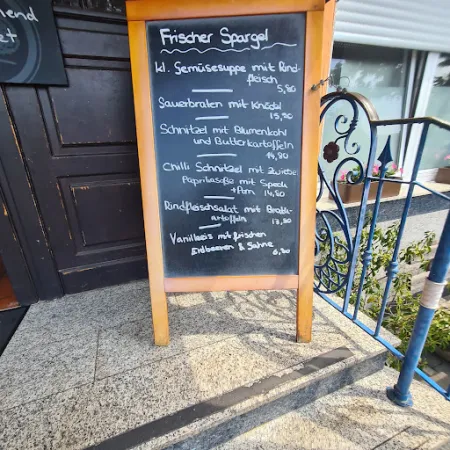 end
et
Frischer Spargel
kl. Gemüsesuppe mit Rind-
fleisch
5,80
Sauerbraten mit Knödel
15,90
Schnitzel mit Blumenkohl
und Butterkartoffeln
14,90
Chilli Schnitzel mit Zwiebel
Paprikasoße mit Speck
+ Pom 14,80
Rindfleischsalat mit Bratk-
artoffeln
Vanilleeis mit frischen
Erdbeeren & Sahne
6,90